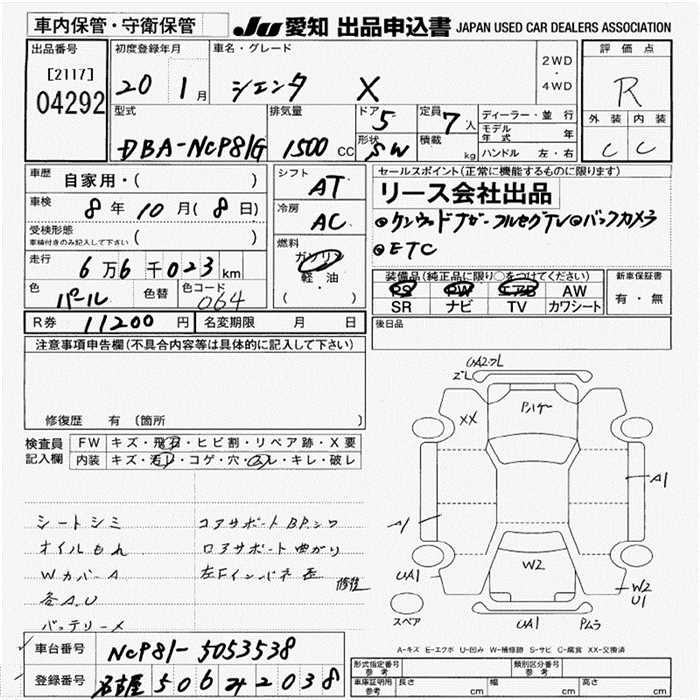 車内保管・守衛保管
JU 愛知 出品申込書 JAPAN USED CAR DEALERS ASSOCIATION
出品番号
[2117]
04292
初度登録年月
20 1月
車名・グレード
シエンタ X
2WD
・
4WD
評価点
R
外装 内装
C C
型式
DBA-NCP81G
排気量
1500 CC
ドア 5
形状 SW
定員 7人
積載 kg
ディーラー・並行
モデル年式 年
ハンドル 左・右
車歴 自家用・( )
車検 8年10月(8日)
受検形態
車検付きのみ記入して下さい ( )
走行 6万6千023km
色 パール 色替 色コード 064
R券 11200円 名変期限 月 日
シフト AT
冷房 AC
燃料
ガソリン
軽・油
セールスポイント(正常に機能するものに限ります)
リース会社出品
◎ケンウッドナビ フルセグTV◎バックカメラ
◎ETC
装備品(純正品に限り○をつけてください)
PS PW エアB AW
SR ナビ TV カワシート
新車保証書
有・無
後日品
注意事項申告欄(不具合内容等は具体的に記入して下さい)
修復歴 有 (箇所 )
検査員記入欄
FW キズ・飛石・ヒビ割・リペア跡・X要
内装 キズ・汚レ・コゲ・穴・スレ・キレ・破レ
シートシミ
オイルもれ
WカバーA
各A.U
バッテリーメ
コアサポートBP.シワ
ロアサポート曲がり
左Fインパネ歪 修雑
UA2フレ
ズレ
XX
A1
A1
UA1
W2
W2
U1
UA1
Pムラ
スペア
A-キズ E-エクボ U-凹み W-補修跡 S-サビ C-腐食 XX-交換済
車台番号 NCP81-5053538
登録番号 名古屋 506 2038
形式指定番号
参考
類別区分番号
参考
車庫証明用
参考
長さ cm 幅 cm 高さ cm